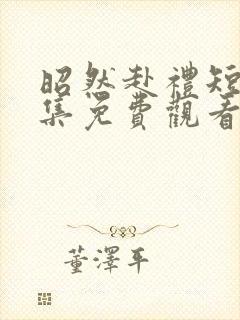 昭然赴禮短
集免費觀看
董澤平